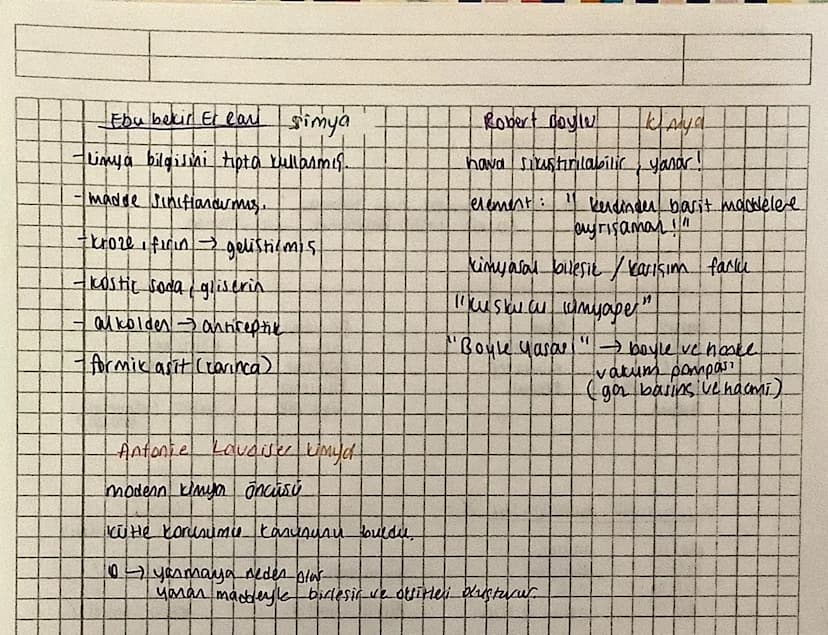 Ebu bekir Er Razi simya
- kimya bilgisini tıpta kullanmış.
- madde sınıflandırmış.
- kroze, fırın → geliştirmiş
- kostic soda, gliserin
- alkolden → antiseptik
- formik asit (karınca)
Robert Boyle kimya
hava sıkıştırılabilir, yanar!
element: " kendinden basit maddelere
ayrışamaz!"
kimyasal bileşik / karışım farkı
"kuşkucu kimyager"
"Boyle yasası" → boyle ve hooke
vakum pompası
(gaz basınç ve hacmi)
Antonie Lavoiser kimya
modern kimya öncüsü
kütle korunumu kanununu buldu.
O → yanmaya neden olur
yanan maddeyle birleşir ve oksitleri oluşturur.